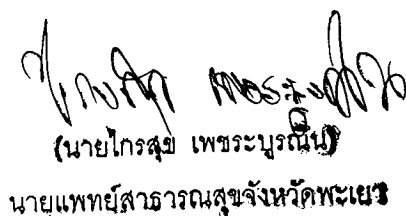 (นายไกรสุข เพชระบูรณิน)
นายแพทย์สาธารณสุขจังหวัดพะเยา